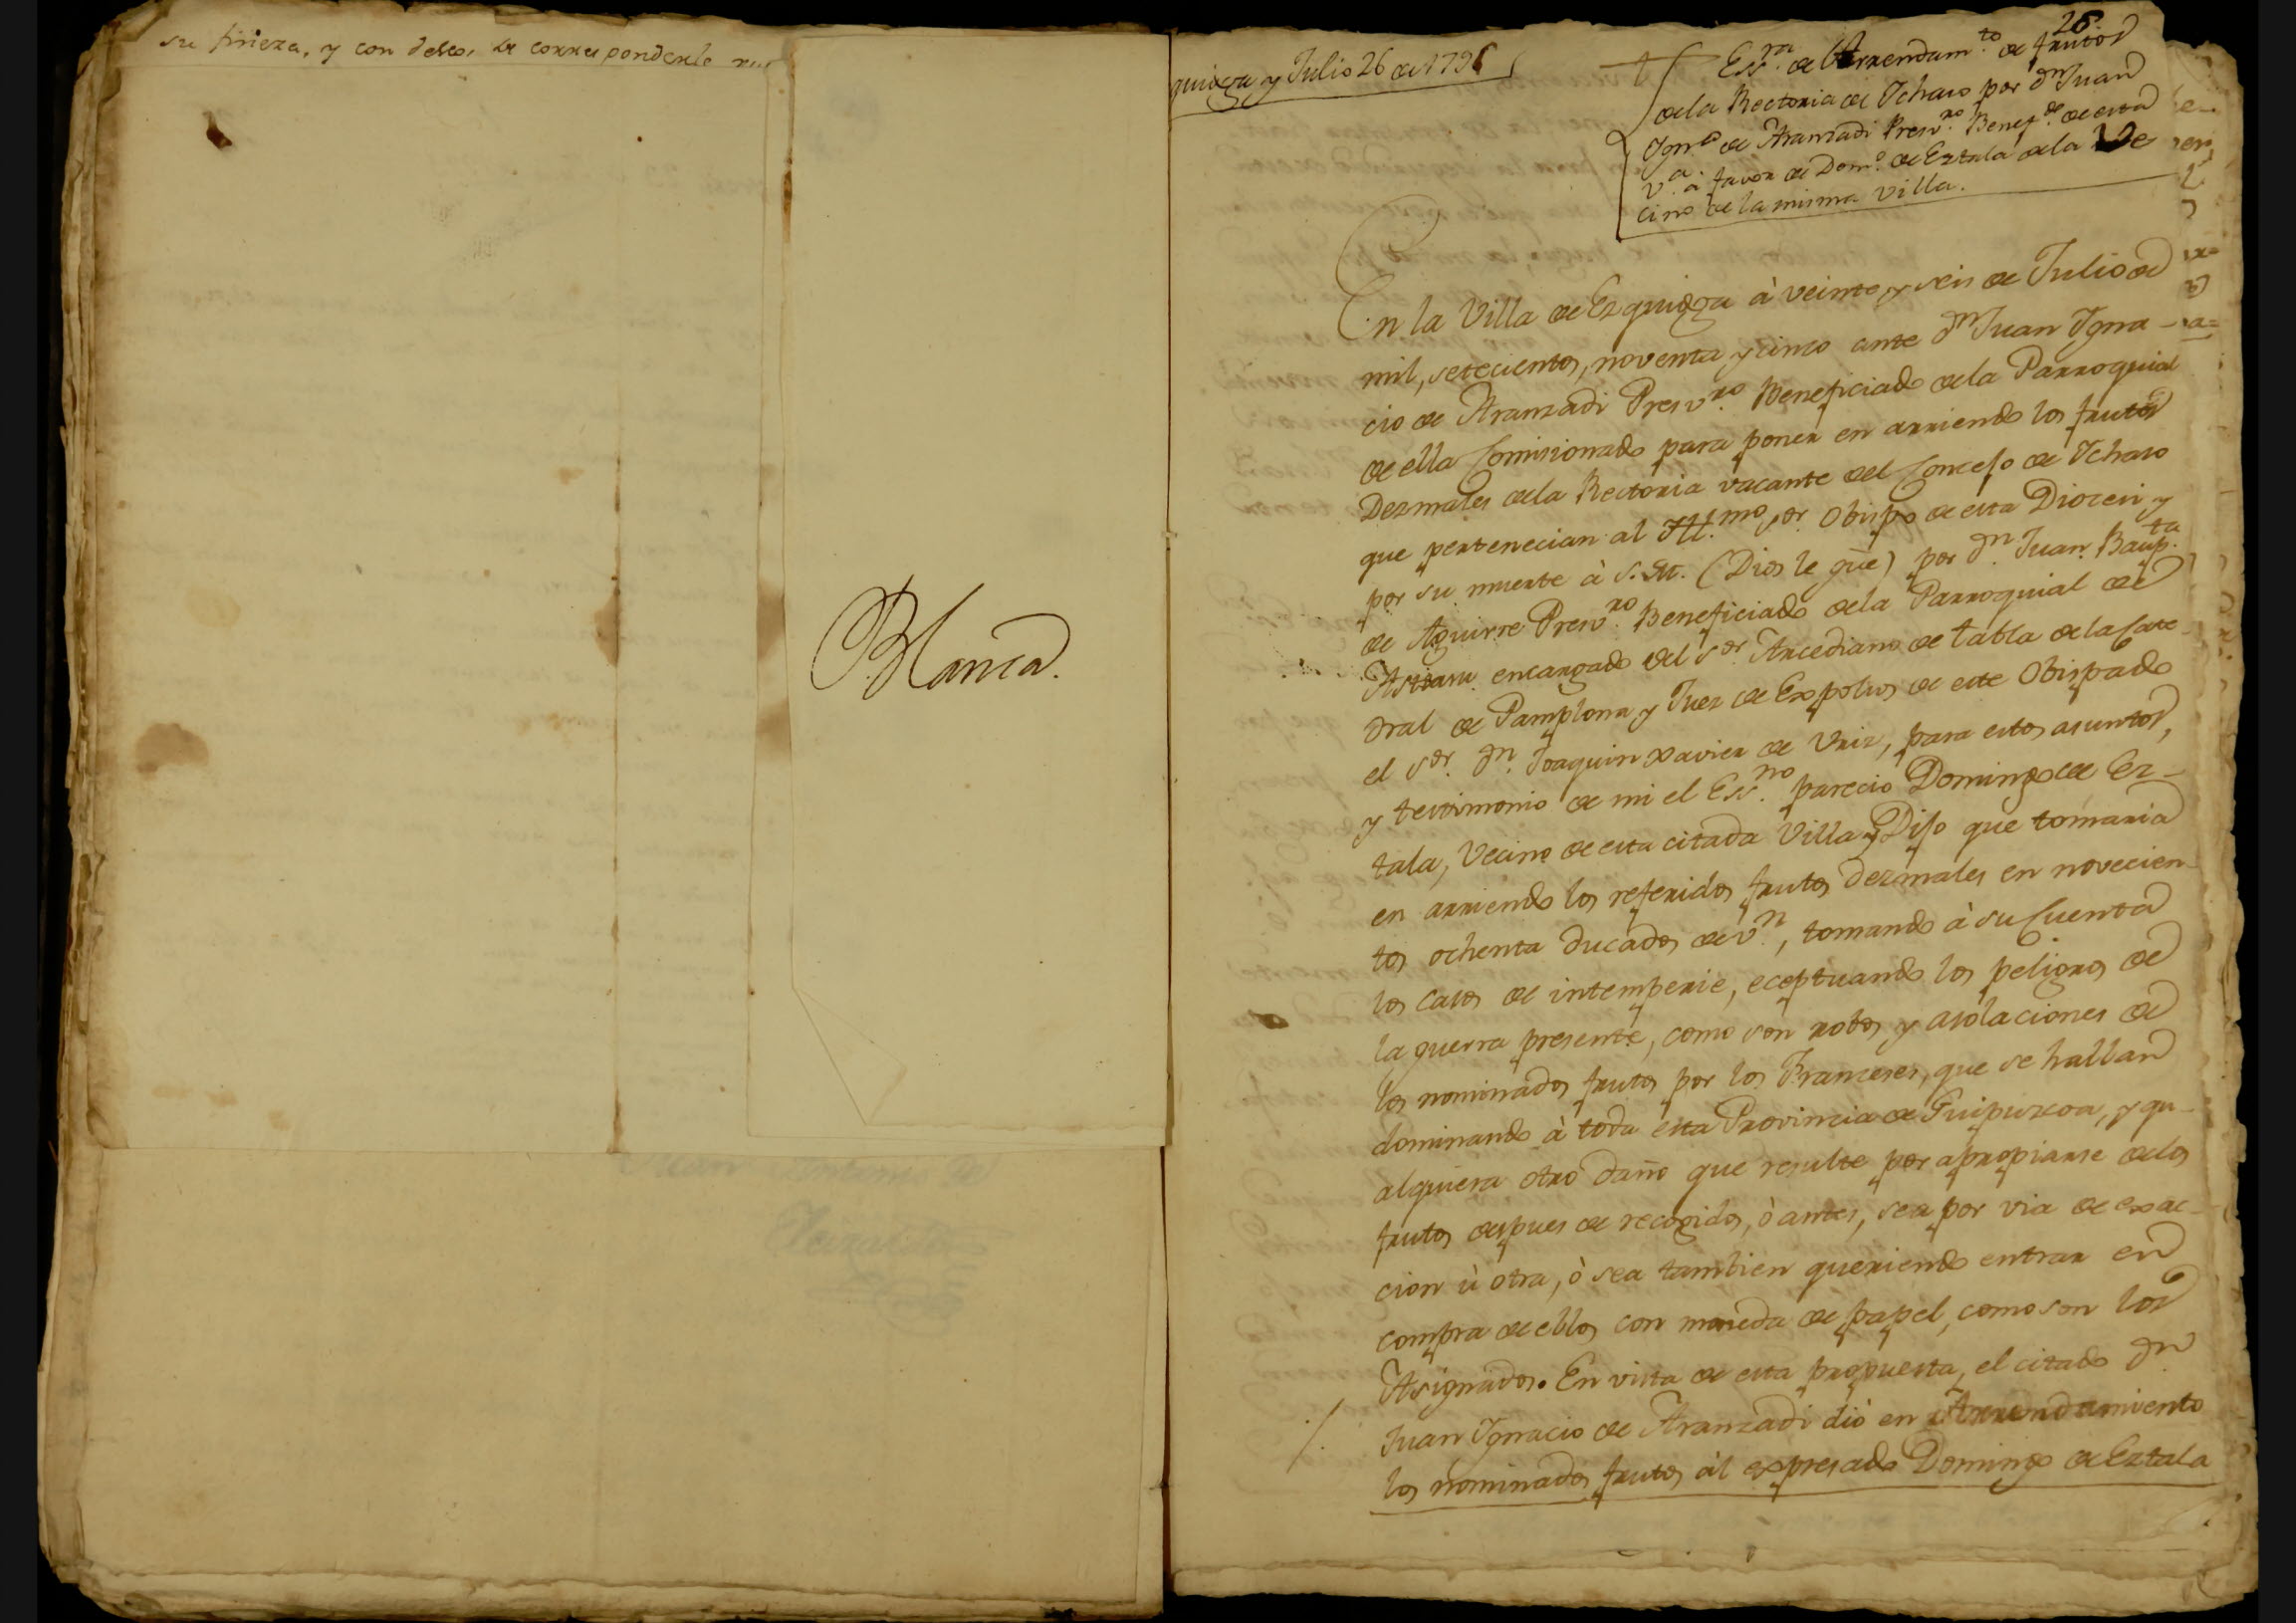 su fineza, y con deseos de corresponderle
Blanca.
28.
quioga y Julio 26 de 1795
Ess.ra de Arrendam.to de frutos
de la Rectoria de Ichaso por Dn Juan
Ign.o de Aranzadi Presv.ro Benef.do de esta
V.a a favor de Dom.o de Eztala de la Ve
cino de la misma villa.
En la Villa de Ezquioga à veinte y seis de Julio de
mil, setecientos, noventa y cinco ante Dn Juan Igna-
cio de Aranzadi Presv.ro Beneficiado de la Parroquial
de ella Comisionado para poner en arriendo los frutos
Dezmales de la Rectoria vacante del Concejo de Ichaso
que pertenecian al Ill.mo s.or Obispo de esta Diocesi y
por su muerte à S.M. (Dios le gue) por Dn Juan Baup.ta
de Aguirre Presv.ro Beneficiado de la Parroquial de
encargado del s.or Arcediano de tabla de la Cate-
dral de Pamplona y Juez de Expolios de este Obispado
el s.or Dn Joaquin Xavier de Uriz, para estos asuntos,
y testimonio de mi el Ess.no parecio Domingo de Ez-
tala, Vecino de esta citada Villa y Dijo que tomaria
en arriendo los referidos frutos dezmales en novecien-
tos ochenta ducados de v.n, tomando à su Cuenta
los casos de intemperie, eceptuando los peligros de
la guerra presente, como son robos, y asolaciones de
los nominados frutos por los Franceses, que se hallan
dominando à toda esta Provincia de Guipuzcoa, y qu-
alquiera otro daño que resulte por apropiarse de los
frutos despues de recogidos, ò antes, sea por via de exac-
cion ù otra, ò sea tambien queriendo entrar en
compra de ellos con moneda de papel, como son los
Asignados. En vista de esta propuesta, el citado Dn
Juan Ignacio de Aranzadi dió en Arrendamiento
los nominados frutos àl expresado Domingo de Eztala